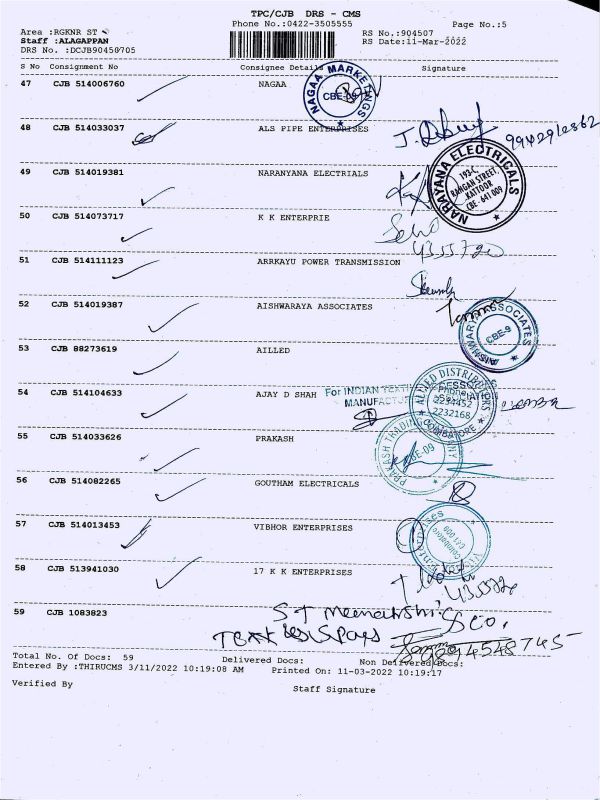 TPC/CJB DRS - CMS
Phone No.:0422-3505555
Page No.:5
Area :RGKNR ST
RS No.:904507
Staff :ALAGAPPAN
RS Date:11-Mar-2022
DRS No. :DCJB90450705
S No Consignment No Consignee Details Signature
47 CJB 514006760 NAGAA
NAGAA MARKETINGS
CBE-09
48 CJB 514033037 ALS PIPE ENTERPRISES
49 CJB 514019381 NARANYANA ELECTRIALS
NARAYANA ELECTRICALS
193-C,
RANGAN STREET,
KATTOOR
CBE - 641 009
50 CJB 514073717 K K ENTERPRIE
51 CJB 514111123 ARRKAYU POWER TRANSMISSION
52 CJB 514019387 AISHWARAYA ASSOCIATES
AISHWARYA ASSOCIATES
CBE-9
53 CJB 88273619 AILLED
ALLIED DISTRIBUTORS
COIMBATORE
54 CJB 514104633 AJAY D SHAH
For INDIAN TEXTILE
MANUFACTUR
ASSOCIATION
Phone
2234452
2232168
55 CJB 514033626 PRAKASH
PRAKASH TRADING
CBE-09
56 CJB 514082265 GOUTHAM ELECTRICALS
57 CJB 514013453 VIBHOR ENTERPRISES
58 CJB 513941030 17 K K ENTERPRISES
59 CJB 1083823
S T Meenakshi & Co.
Total No. Of Docs: 59 Delivered Docs: Non Delivered Docs:
Entered By :THIRUCMS 3/11/2022 10:19:08 AM Printed On: 11-03-2022 10:19:17
Verified By Staff Signature